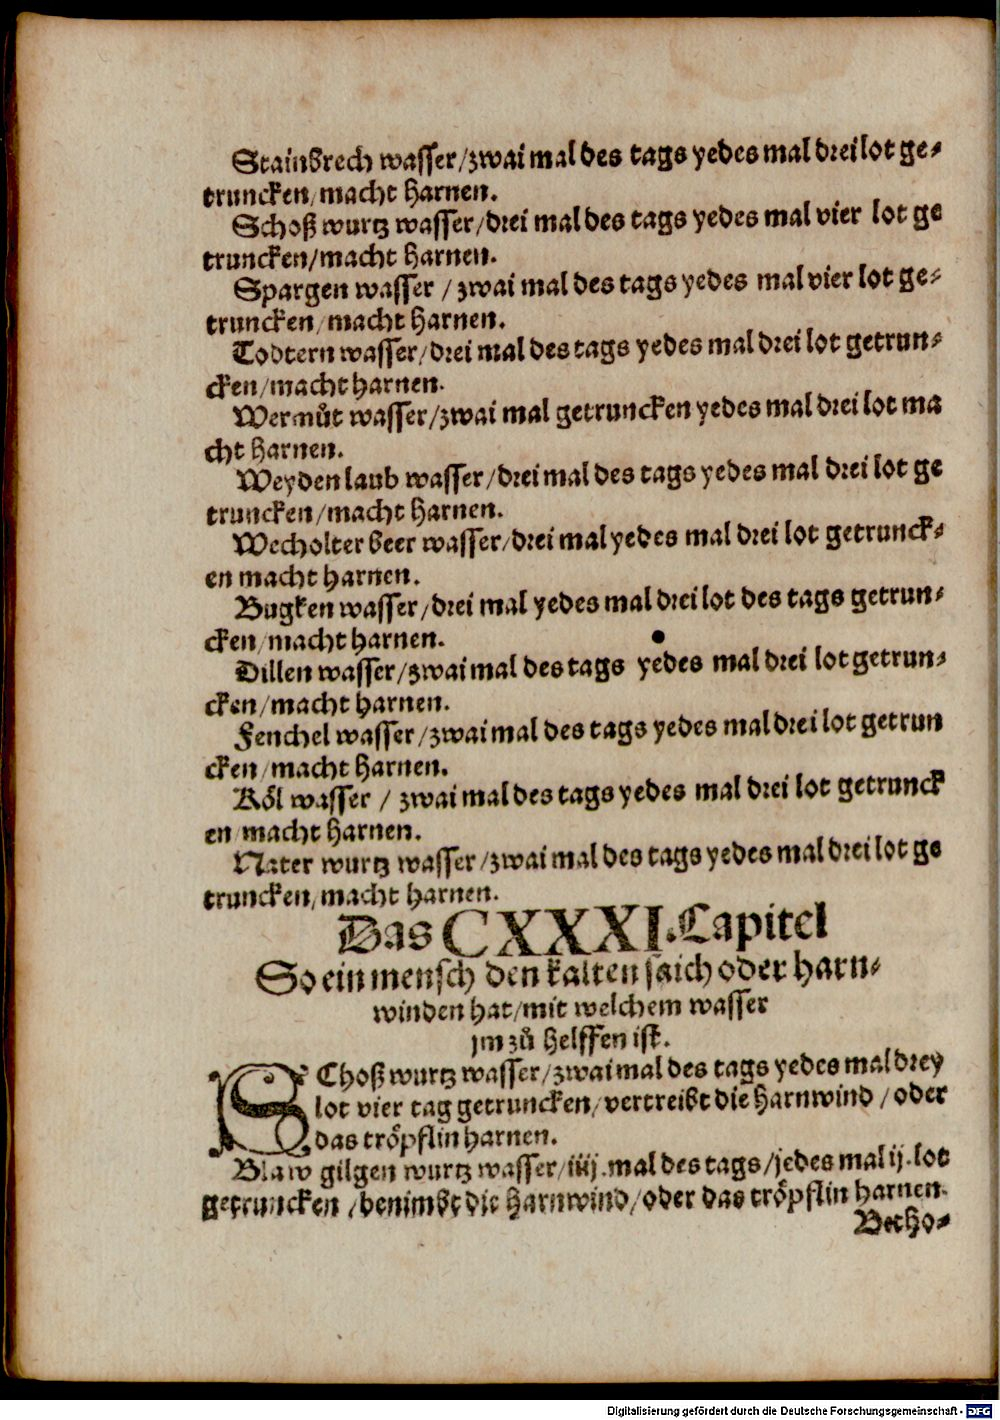 Stainbrech wasser/zwai mal des tags yedes mal drei lot ge⸗
truncken/macht harnen.
Schoß wurtz wasser/drei mal des tags yedes mal vier lot ge
truncken/macht harnen.
Spargen wasser / zwai mal des tags yedes mal vier lot ge⸗
truncken/macht harnen.
Todtern wasser/drei mal des tags yedes mal drei lot getrun⸗
cken/macht harnen.
Wermůt wasser/zwai mal getruncken yedes mal drei lot ma
cht harnen.
Weyden laub wasser/drei mal des tags yedes mal drei lot ge
truncken/macht harnen.
Wecholter beer wasser/drei mal yedes mal drei lot getrunck⸗
en macht harnen.
Bugken wasser/drei mal yedes mal drei lot des tags getrun⸗
cken/macht harnen.
Dillen wasser/zwai mal des tags yedes mal drei lot getrun⸗
cken/macht harnen.
Fenchel wasser/zwai mal des tags yedes mal drei lot getrun
cken/macht harnen.
Köl wasser / zwai mal des tags yedes mal drei lot getrunck
en/macht harnen.
Nater wurtz wasser/zwai mal des tags yedes mal drei lot ge
truncken/macht harnen.
Das CXXXI. Capitel
So ein mensch den kalten saich oder harn⸗
winden hat/mit welchem wasser
jm zů helffen ist.
SChoß wurtz wasser/zwai mal des tags yedes mal drey
lot vier tag getruncken/vertreibt die harnwind / oder
das tröpflin harnen.
Blaw gilgen wurtz wasser/iiij.mal des tags/jedes mal ij.lot
getruncken/benimbt die harnwind/oder das tröpflin harnen.
Betho⸗
Digitalisierung gefördert durch die Deutsche Forschungsgemeinschaft - DFG